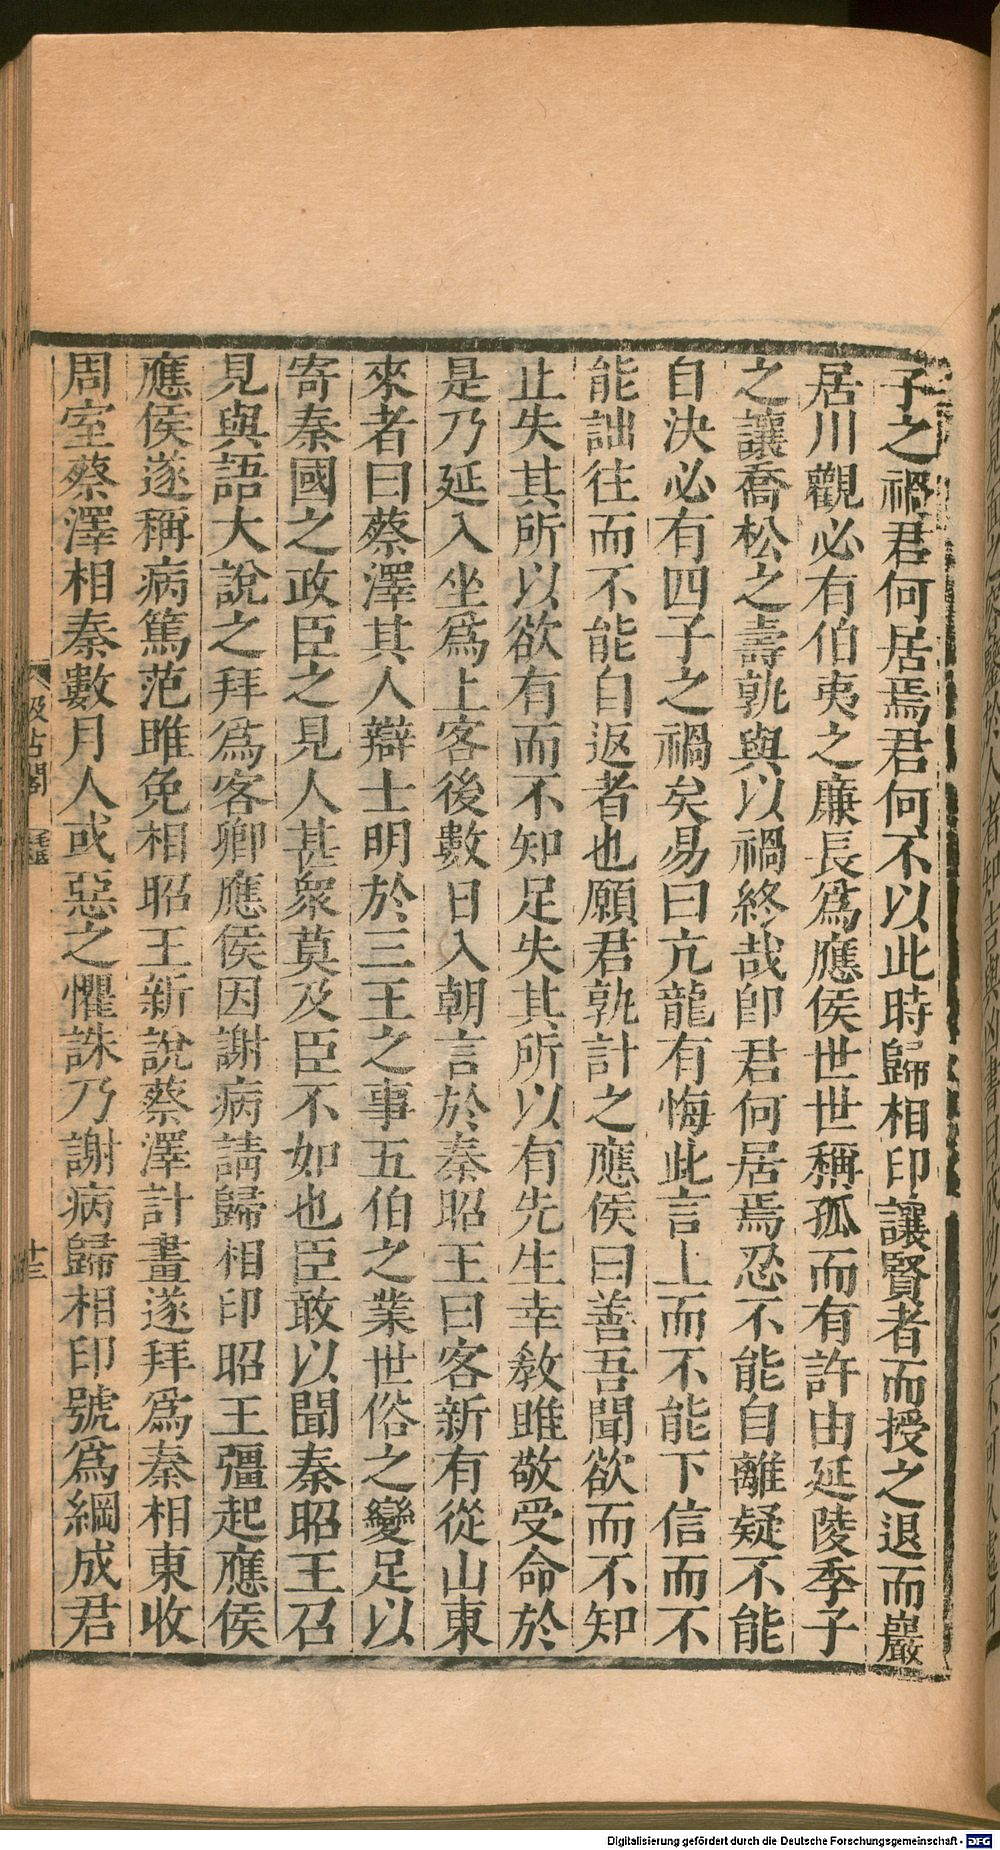 子之禍君何居焉君何不以此時歸相印讓賢者而授之退而巖
居川觀必有伯夷之廉長爲應侯世世稱孤而有許由延陵季子
之讓喬松之壽孰與以禍終哉卽君何居焉忍不能自離疑不能
自決必有四子之禍矣易曰亢龍有悔此言上而不能下信而不
能詘往而不能自返者也願君孰計之應侯曰善吾聞欲而不知
止失其所以欲有而不知足失其所以有先生幸敎雎敬受命於
是乃延入坐爲上客後數日入朝言於秦昭王曰客新有從山東
來者曰蔡澤其人辯士明於三王之事五伯之業世俗之變足以
寄秦國之政臣之見人甚衆莫及臣不如也臣敢以聞秦昭王召
見與語大說之拜爲客卿應侯因謝病請歸相印昭王彊起應侯
應侯遂稱病篤范雎免相昭王新說蔡澤計畫遂拜爲秦相東收
周室蔡澤相秦數月人或惡之懼誅乃謝病歸相印號爲綱成君
汲古閣
十三
Digitalisierung gefördert durch die Deutsche Forschungsgemeinschaft - DFG